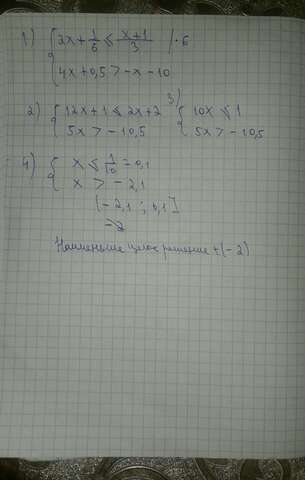 1) { 2x + 1/6 ≤ x+1/3 | · 6
4x + 0,5 > -x - 10
2) { 12x + 1 ≤ 2x + 2 3) { 10x ≤ 1
5x > -10,5 5x > -10,5
4) { x ≤ 1/10 = 0,1
x > -2,1
(-2,1 ; 0,1]
-2
Наименьше целое решение + (-2)